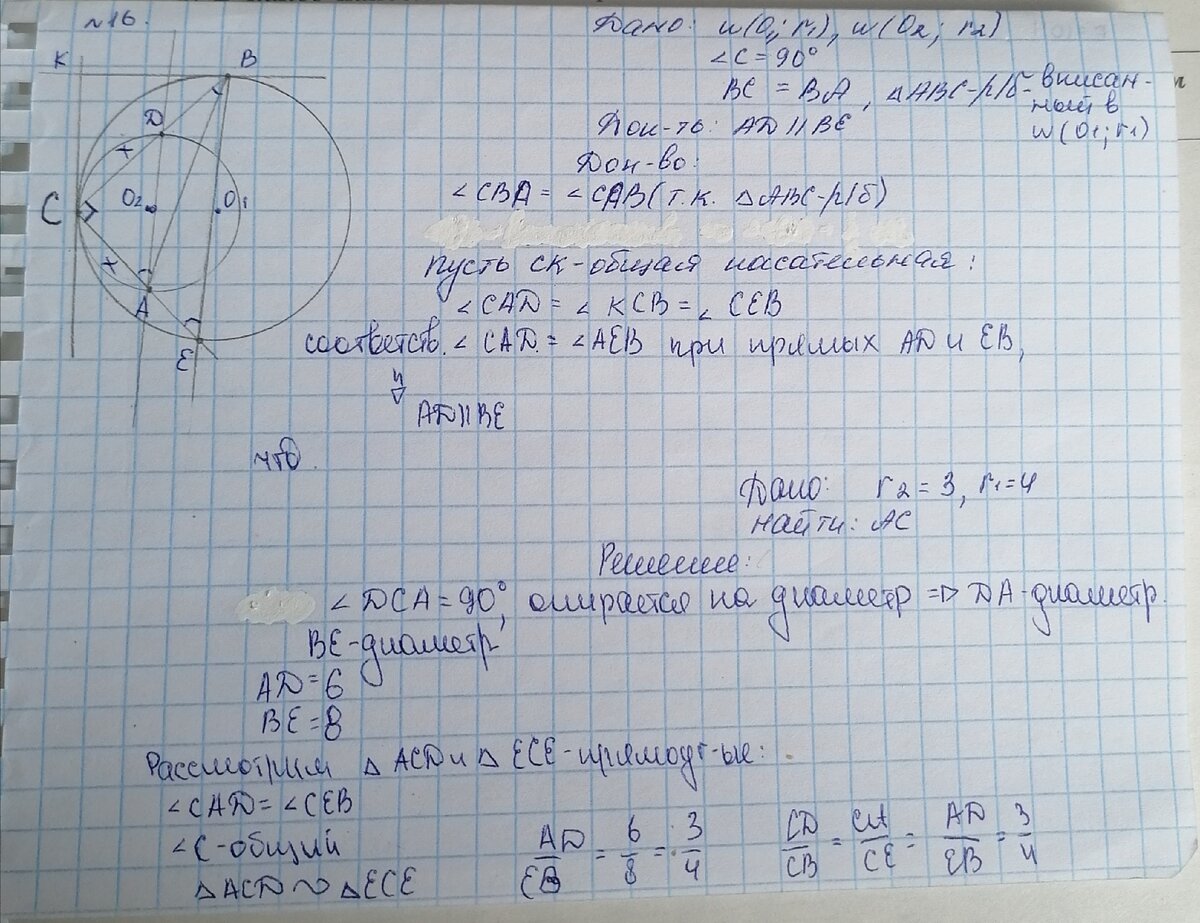 №16.
Дано: w(O1; r1), w(O2; r2)
∠C = 90°
BC = BA, △ABC-р/б- вписан-
ный в
w(O1; r1)
Док-ть: AD || BE
Док-во:
∠CBA = ∠CAB (т.к. △ABC-р/б)
пусть CK-общая касательная:
∠CAD = ∠KCB = ∠CEB
соответств. ∠CAD = ∠AEB при прямых AD и EB,
⇓
AD || BE
чтд.
Дано: r2 = 3, r1 = 4
найти: AC
Решение:
∠DCA = 90°, опирается на диаметр => DA-диаметр.
BE-диаметр
AD = 6
BE = 8
Рассмотрим △ACD и △ECE-прямоуг-ые:
∠CAD = ∠CEB
∠C-общий
△ACD ∾ △ECE
AD/EB = 6/8 = 3/4
CD/CB = CA/CE = AD/EB = 3/4
K
B
D
x
C
O2
O1
x
A
E